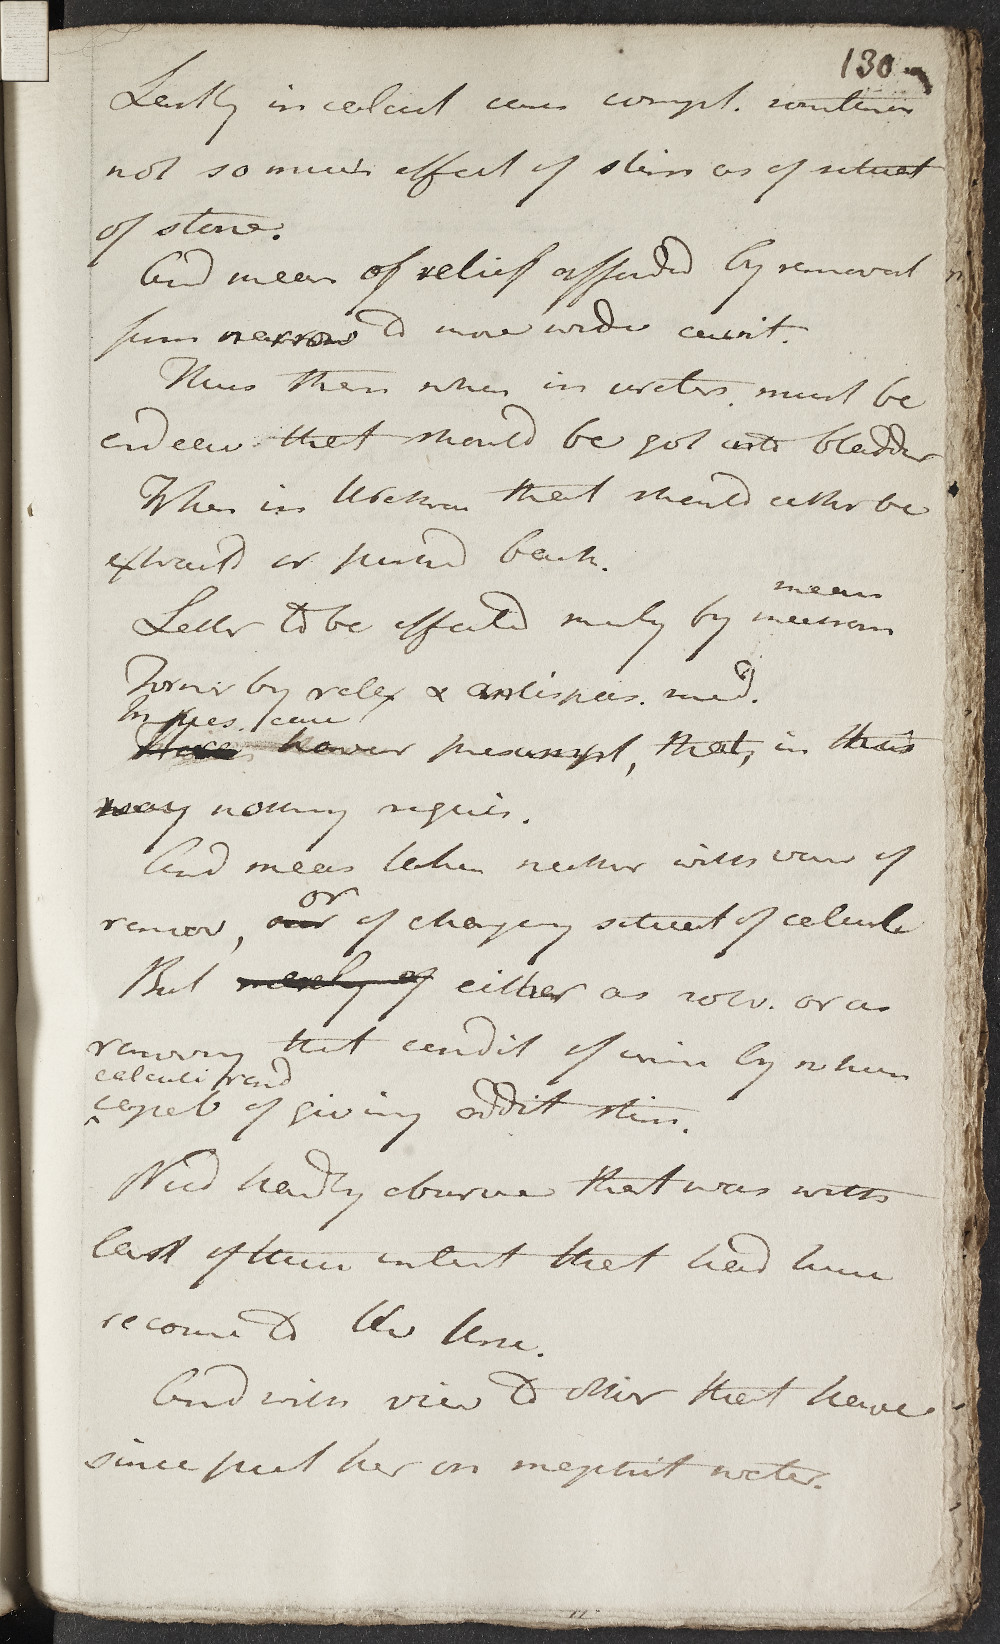 130
Lastly in calcul cases compl. sometimes
not so much effect of stim as of situat
of stone.
And mean of relief afforded by removal
from narrow to more wide cavit.
Thus then when in ureters. must be
endeav. that should be got into bladder
When in Urethra that should either be
extracted or pushed back.
Latter to be effected merly by mean
Former by relax & antispas. med.
In pres. case
however presumpt, that, in this
way nothing requir.
And meas taken neither with view of
remov, or of changing situat of calculi
But merely of either as solv. or as
removing that condit of urine by which
calculi rend
capab of giving addit stim.
Need hardly observe that was with
last of these intent that had here
recourse to Uv Ursi.
And with view to other that have
since put her on mephit water.